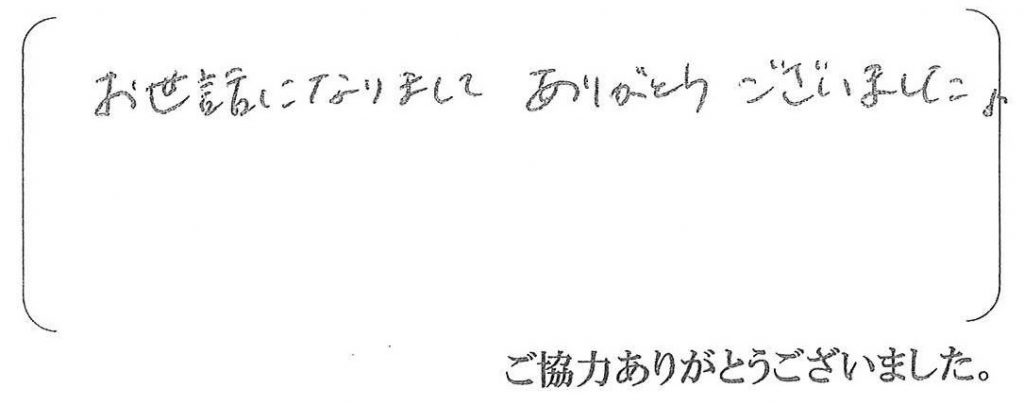 お世話になりまして ありがとう ございました♪
ご協力ありがとうございました。